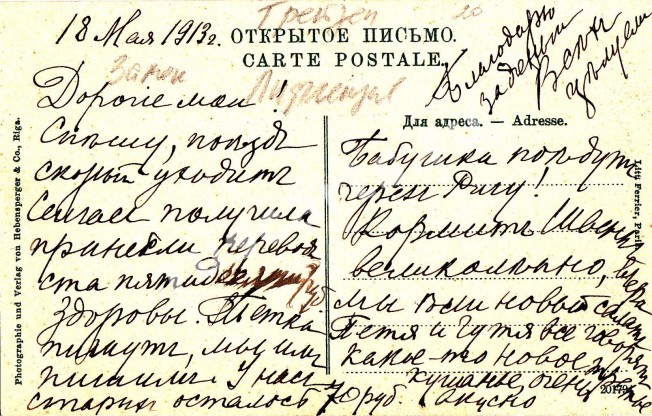 18 Мая 1913 г.
Трейден
20
ОТКРЫТОЕ ПИСЬМО.
CARTE POSTALE.
Замок
Благодарю
за деньги
Всех
целуем
Дорогие мои!
Спѣшу, поѣздъ
скорый уходитъ
Сейчас получила
принесли перевод
ста пятидесяти руб
Здоровы. Тетка
пишутъ, мы им
писали. У нас
старых осталось 70 руб.
Для адреса. — Adresse.
Бабушка поѣдутъ
через Ригу!
Кормитъ
великолѣпно, вчера
мы ѣли новый салат
Петя и Гутя все говорят
какое-то новое
кушанье очень вкусно
Photographie und Verlag von Hebensperger & Co., Riga.
Litt Ferrier, Paris